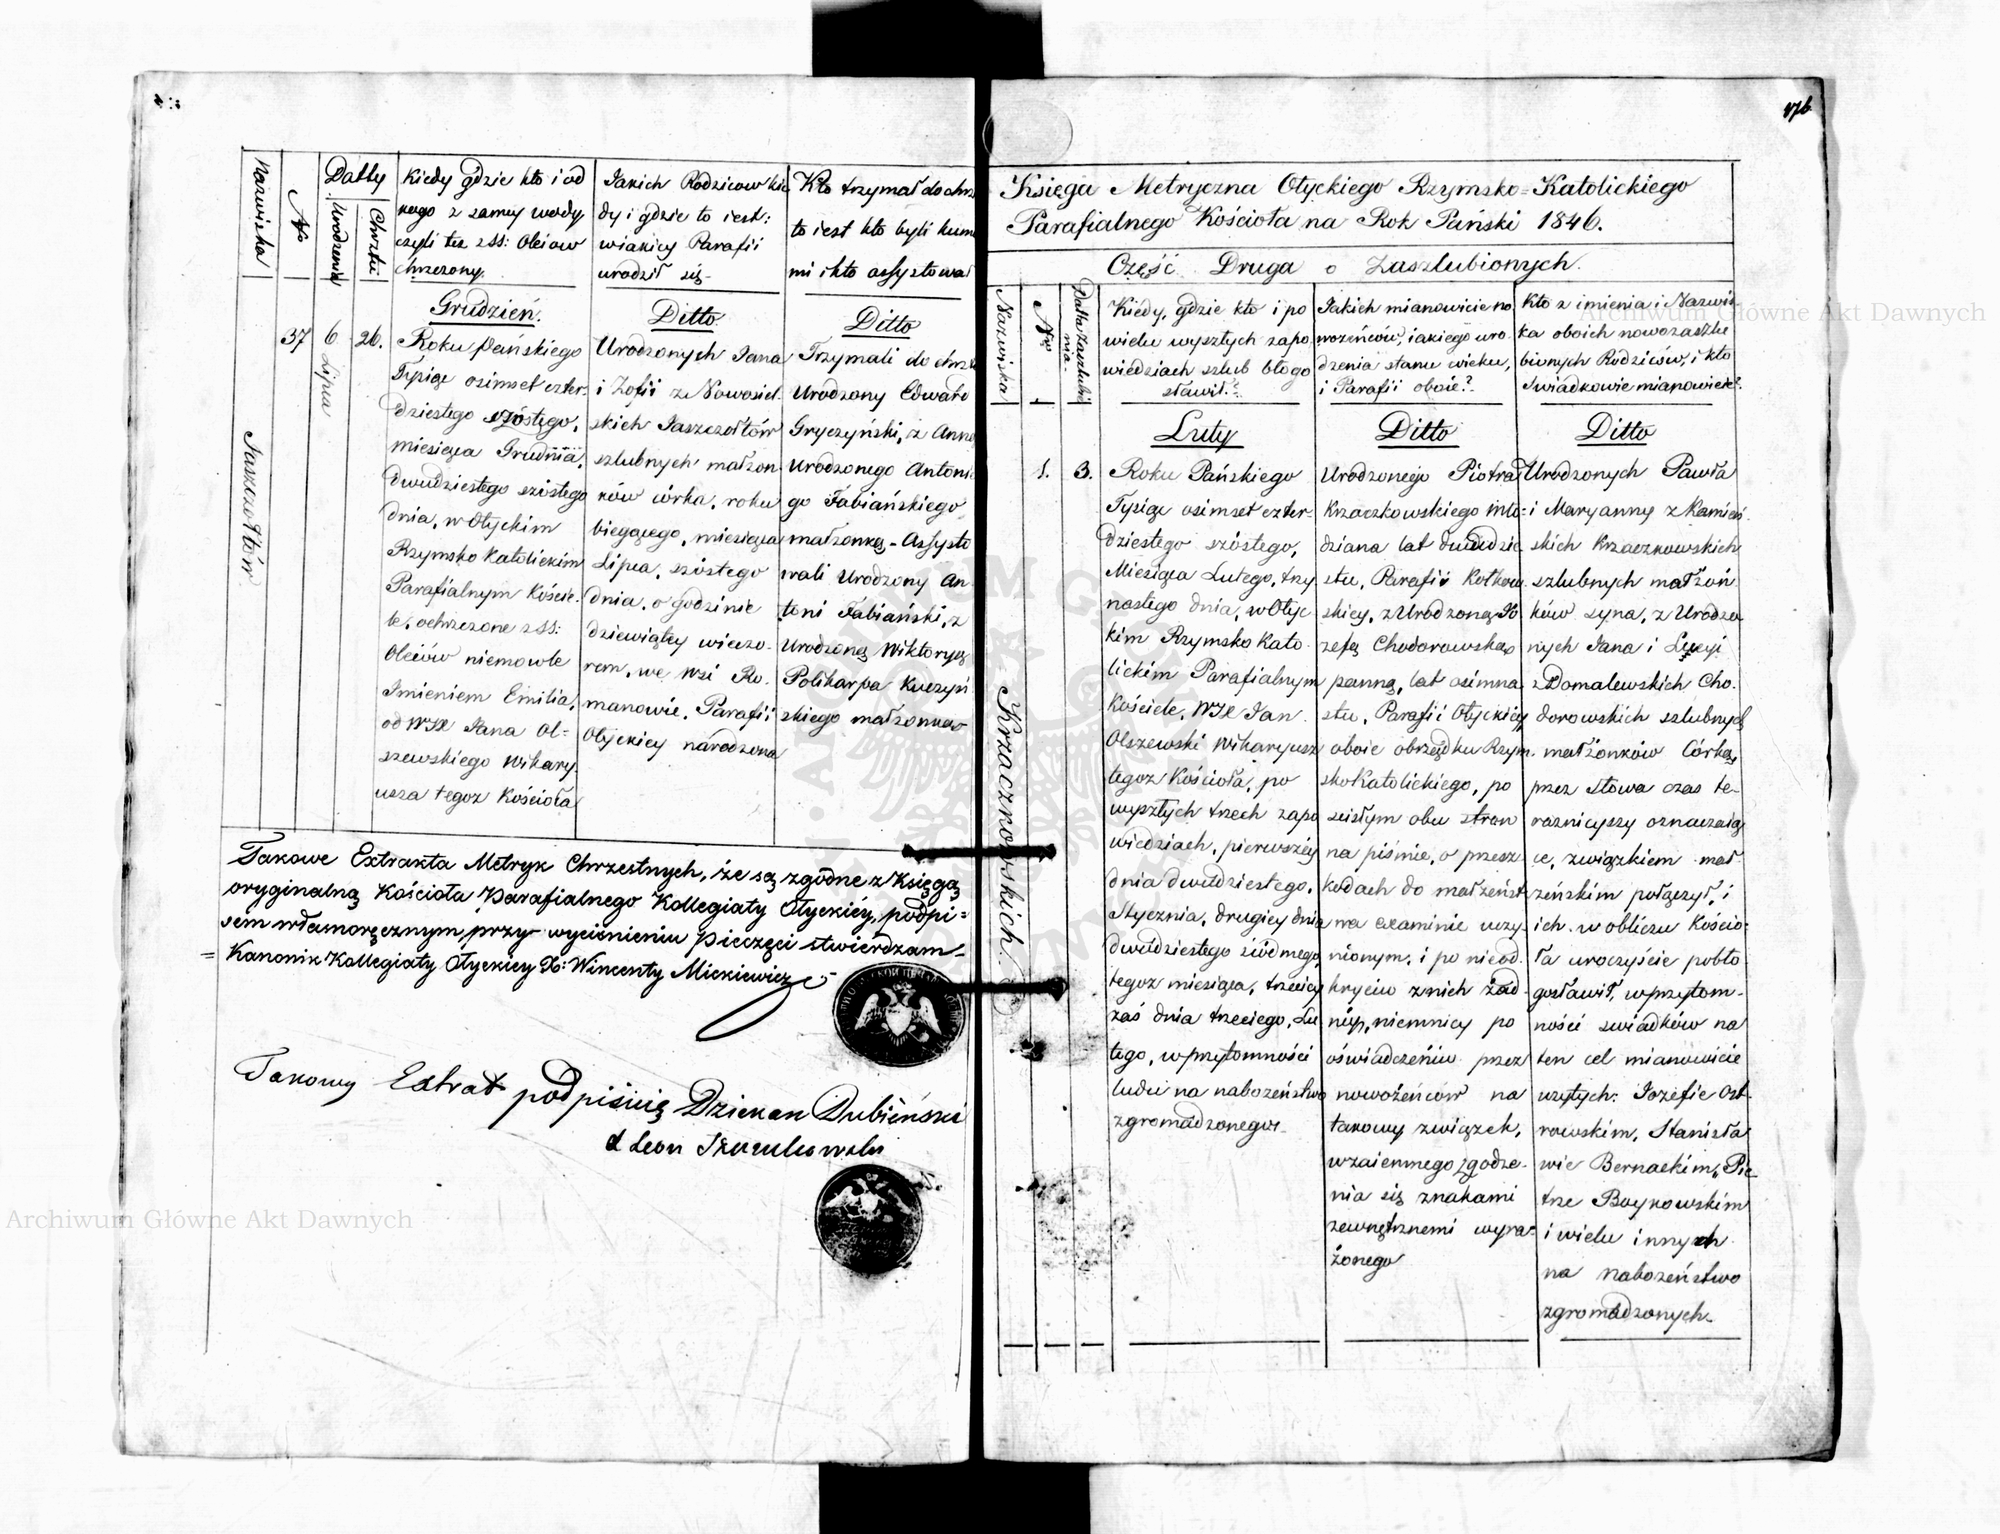 Nazwiska
№
Datty
Urodzenia
Chrztu
Kiedy gdzie kto i od
kogo z samey wody
czyli też z SS: Oleiow
chrzczony.
Jakich Rodzicow kie
dy i gdzie to iest:
w iakiey Parafii
urodził się
Kto trzymał do chrz
to iest kto byli kum
mi i kto assystowa
Grudzień.
Ditto
Ditto
Jaszczołtów
37
6
Lipca
26.
Roku Pańskiego
Tysiąc osimset czter-
dziestego szóstego,
miesiąca Grudnia,
dwudziestego szóstego
dnia, w Ołyckim
Rzymsko Katolickim
Parafialnym Koście-
le, ochrzczone z SS:
Oleiów niemowle
Imieniem Emilia,
od WJX Jana Ol=
szewskiego Wikary-
usza tegoz Kościoła
Urodzonych Jana
i Zofii z Nowosiel-
skich Jaszczołtów
szlubnych małżon
ków córka, roku
biegącego, miesiąca
Lipca, szóstego
dnia, o godzinie
dziewiątey wieczo-
rem, we wsi Ro-
manowie, Parafii
Ołyckiey narodzona
Trzymali do chrzt
Urodzony Edward
Gryczyński, z Anną
Urodzonego Antoni
go Fabiańskiego
małżonką - Assysto
wali Urodzony An-
toni Fabiański, z
Urodzoną Wiktoryą
Polikarpa Kuczyń
skiego małżonką
Takowe Extrakta Metryk Chrzestnych, że są zgodne z Księgą
oryginalną Kościoła Parafialnego Kollegiaty Ołyckiéy, podpi=
sem własnoręcznym, przy wyciśnieniu pieczęci stwierdzam
= Kanonik Kollegiaty Ołyckiey X: Wincenty Mickiewicz
Takowy Extrat podpisuię Dziekan Dubieński
X Leon
176
Księga Metryczna Ołyckiego Rzymsko=Katolickiego
Parafialnego Kościoła na Rok Pański 1846.
Część Druga o Zaszlubionych.
Nazwiska
№
Datta Zaszlubie
nia
Kiedy, gdzie kto i po
wielu wyszłych zapo
wiedziach szlub błogo
sławił?
Jakich mianowicie no
wozeńców, iakiego uro
dzenia stanu wieku,
i Parafii oboie?
Kto z imienia i Nazwis
ka oboich nowozaszlu
bionych Rodziców, i kto
Swiadkowie mianowicie?
Luty
Ditto
Ditto
Krzaczkowskich
1.
3.
Roku Pańskiego
Tysiąc osimset czter-
dziestego szóstego,
Miesiąca Lutego, trzy
nastego dnia, w Ołyc-
kim Rzymsko Kato-
lickim Parafialnym
Kościele, WJX Jan
Olszewski Wikaryusz
tegoz Kościoła, po
wyszłych trzech zapo
wiedziach, pierwszéy
dnia dwudziestego,
Stycznia, drugiey dnia
dwudziestego siódmego,
tegoz miesiąca, trzeciey
zaś dnia trzeciego, Lu-
tego, w przytomności
ludu na nabożeństwo
zgromadzonego
Urodzonego Piotra
Krzaczkowskiego mło-
dziana lat dwudzie
stu, Parafii Kołkow-
skiey, z Urodzoną Jó
zefą Chodorowską
panną, lat osimna
stu, Parafii Ołyckiey
oboie obrządku Rzym-
skoKatolickiego, po
ścisłym obu stron
na piśmie, o przesz
kodach do małżeńst
wa examinie uczy
nionym, i po nieod-
kryciu z nich żad-
néy, niemniey po
oświadczeniu przez
nowożeńców na
takowy związek,
wzaiemnego zgodze-
nia się znakami
zewnętrznemi wyra-
żonego
Urodzonych Pawła
i Maryanny z Kamień
skich Krzaczkowskich
szlubnych małżon
ków syna, z Urodzo
nych Jana i Łucyi
z Domalewskich Cho-
dorowskich szlubnych
małżonków Córką,
przez słowa czas te-
raznieyszy oznaczaią
ce, związkiem mał-
żeńskim połączył, i
ich w obliczu Kościo-
ła uroczyście pobło
gosławił, w przytom-
ności swiadków na
ten cel mianowicie
wziętych: Jozefie Ost-
rowskim, Stanisła
wie Bernackim, Pio
trze Boykowskim
i wielu innych
na nabożeństwo
zgromadzonych.
Archiwum Główne Akt Dawnych
Archiwum Główne Akt Dawnych